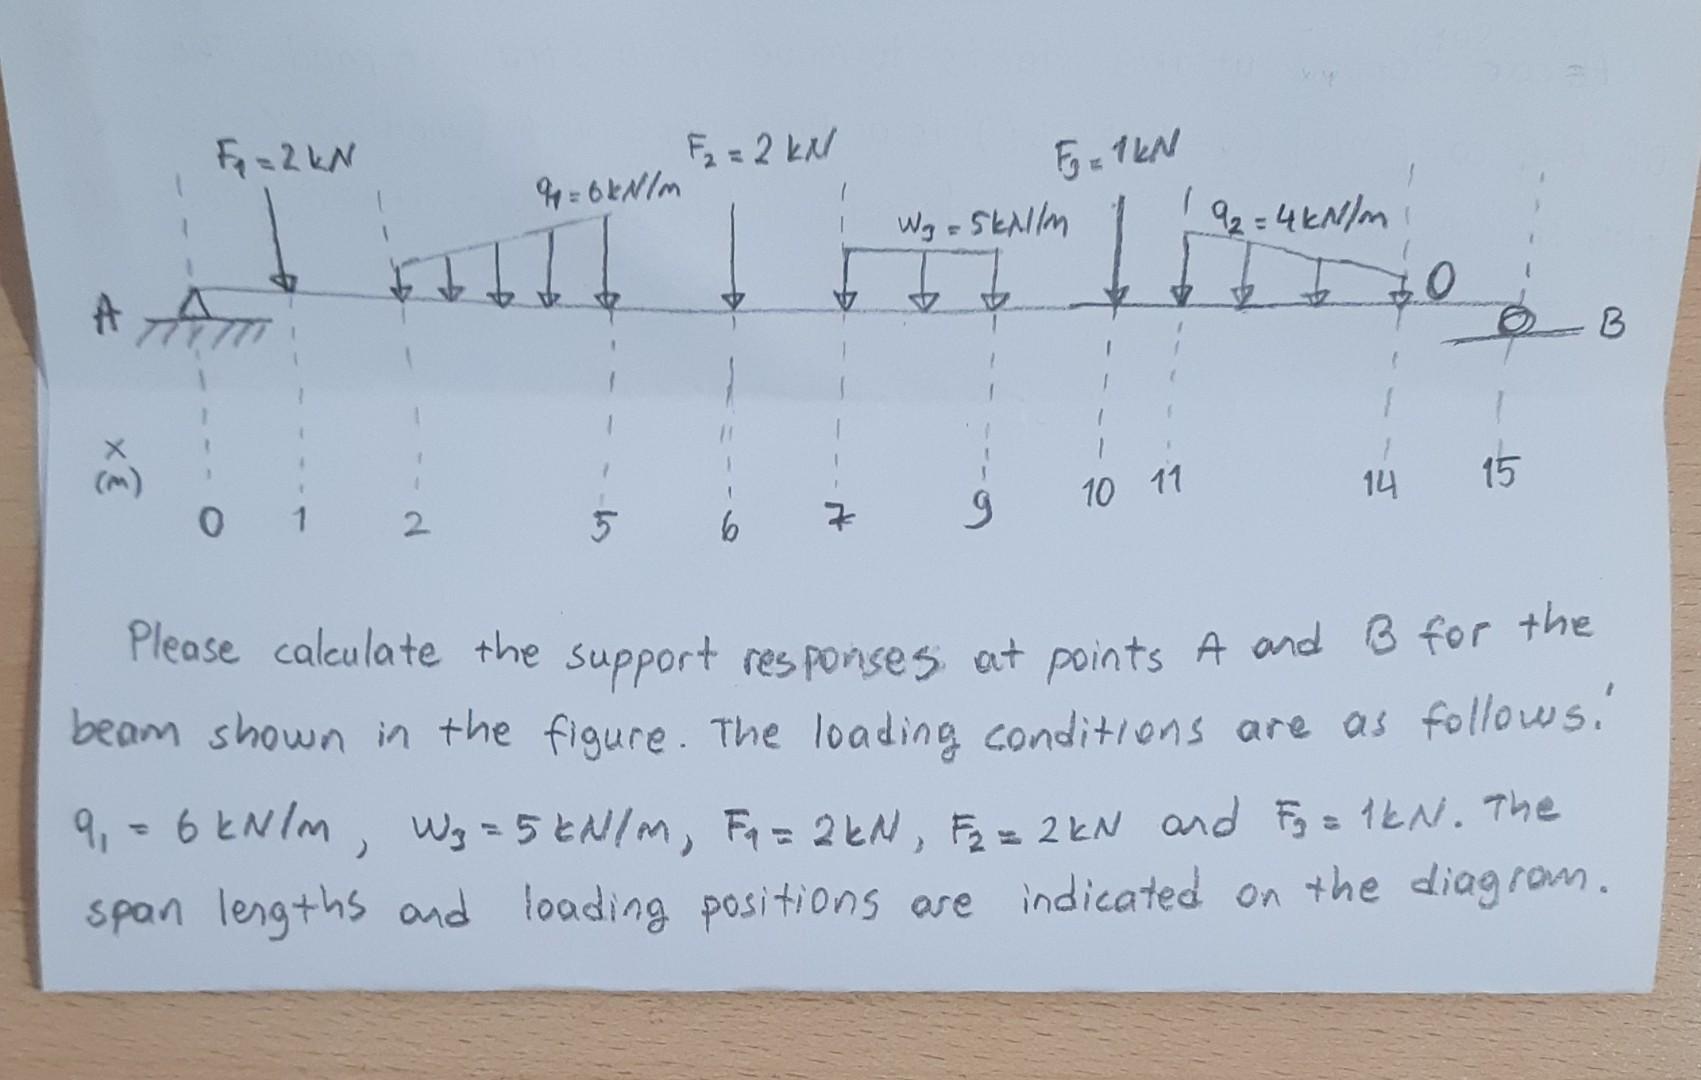 F₁ = 2 kN
F₂ = 2 kN
F₃ = 1 kN
q₁ = 6 kN/m
w₃ = 5 kN/m
q₂ = 4 kN/m
0
A
B
x
(m)
0 1 2 5 6 7 9 10 11 14 15
Please calculate the support responses at points A and B for the
beam shown in the figure. The loading conditions are as follows:
q₁ = 6 kN/m, w₃ = 5 kN/m, F₁ = 2 kN, F₂ = 2 kN and F₃ = 1 kN. The
span lengths and loading positions are indicated on the diagram.